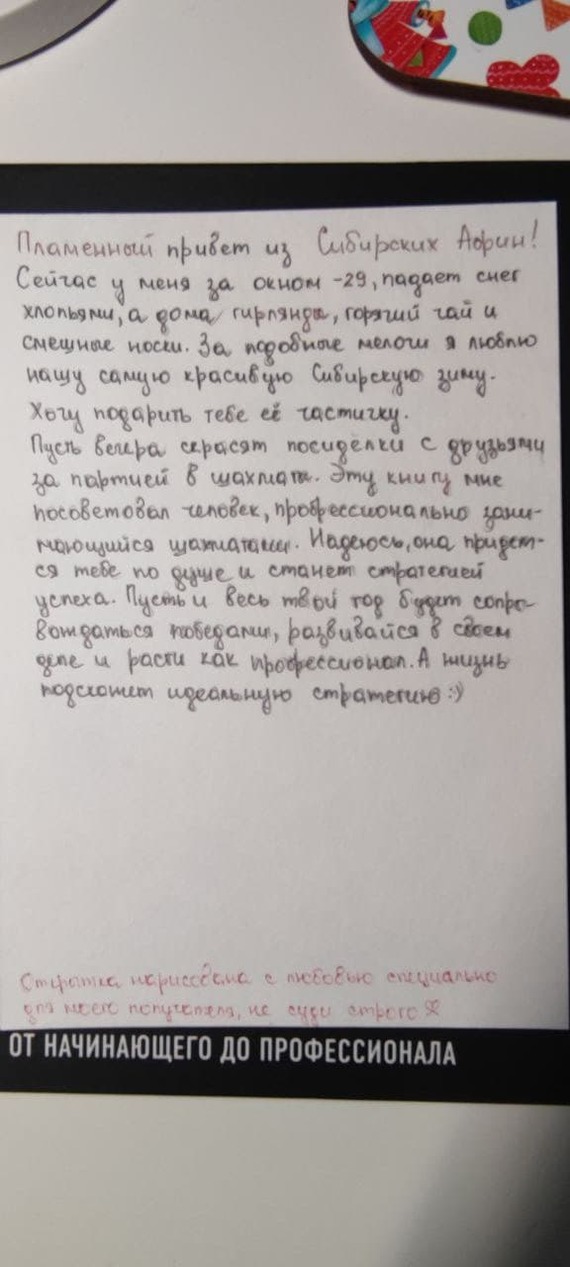 Пламенный привет из Сибирских Афин!
Сейчас у меня за окном -29, падает снег
хлопьями, а дома гирлянды, горячий чай и
смешные носки. За подобные мелочи я люблю
нашу самую красивую Сибирскую зиму.
Хочу подарить тебе её частичку.
Пусть вечера скрасят посиделки с друзьями
за партией в шахматы. Эту книгу мне
посоветовал человек, профессионально зани-
мающийся шахматами. Надеюсь, она придет-
ся тебе по душе и станет стратегией
успеха. Пусть и весь твой год будет сопро-
вождаться победами, развивайся в своем
деле и расти как профессионал. А жизнь
подскажет идеальную стратегию :)
Открытка нарисована с любовью специально
для моего получателя, не суди строго
ОТ НАЧИНАЮЩЕГО ДО ПРОФЕССИОНАЛА